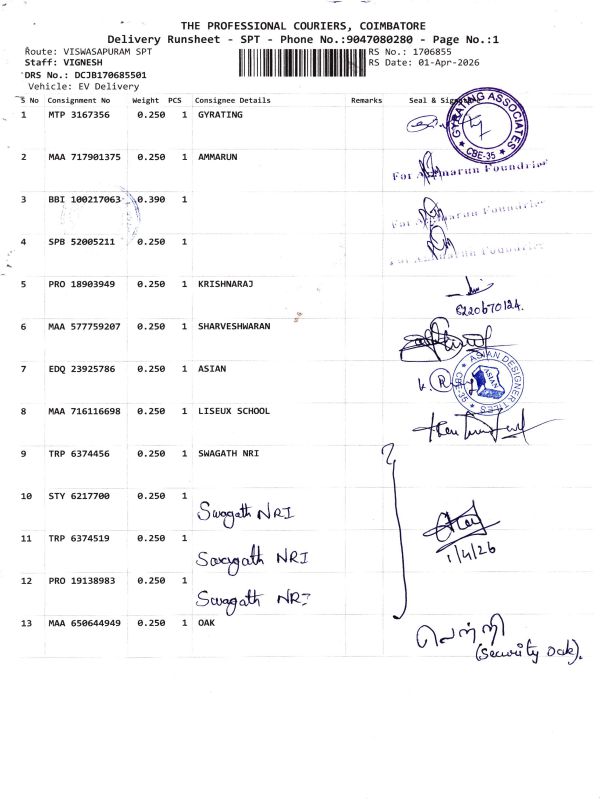 THE PROFESSIONAL COURIERS, COIMBATORE
Delivery Runsheet - SPT - Phone No.:9047080280 - Page No.:1
Route: VISWASAPURAM SPT RS No.: 1706855
Staff: VIGNESH RS Date: 01-Apr-2026
DRS No.: DCJB170685501
Vehicle: EV Delivery
S No Consignment No Weight PCS Consignee Details Remarks Seal &
1 MTP 3167356 0.250 1 GYRATING
GYRATING ASSOCIATES
CBE-35
2 MAA 717901375 0.250 1 AMMARUN
For Ammarun Foundries
3 BBI 100217063 0.390 1
For Ammarun Foundries
4 SPB 52005211 0.250 1
For Ammarun Foundries
5 PRO 18903949 0.250 1 KRISHNARAJ
6220670124.
6 MAA 577759207 0.250 1 SHARVESHWARAN
7 EDQ 23925786 0.250 1 ASIAN
ASIAN DESIGNER TILES
CBE-35
ASIAN
8 MAA 716116698 0.250 1 LISEUX SCHOOL
9 TRP 6374456 0.250 1 SWAGATH NRI
10 STY 6217700 0.250 1
Swagath NRI
11 TRP 6374519 0.250 1
Swagath NRI
1/4/26
12 PRO 19138983 0.250 1
Swagath NRI
13 MAA 650644949 0.250 1 OAK
வெற்றி
(Security Oak).